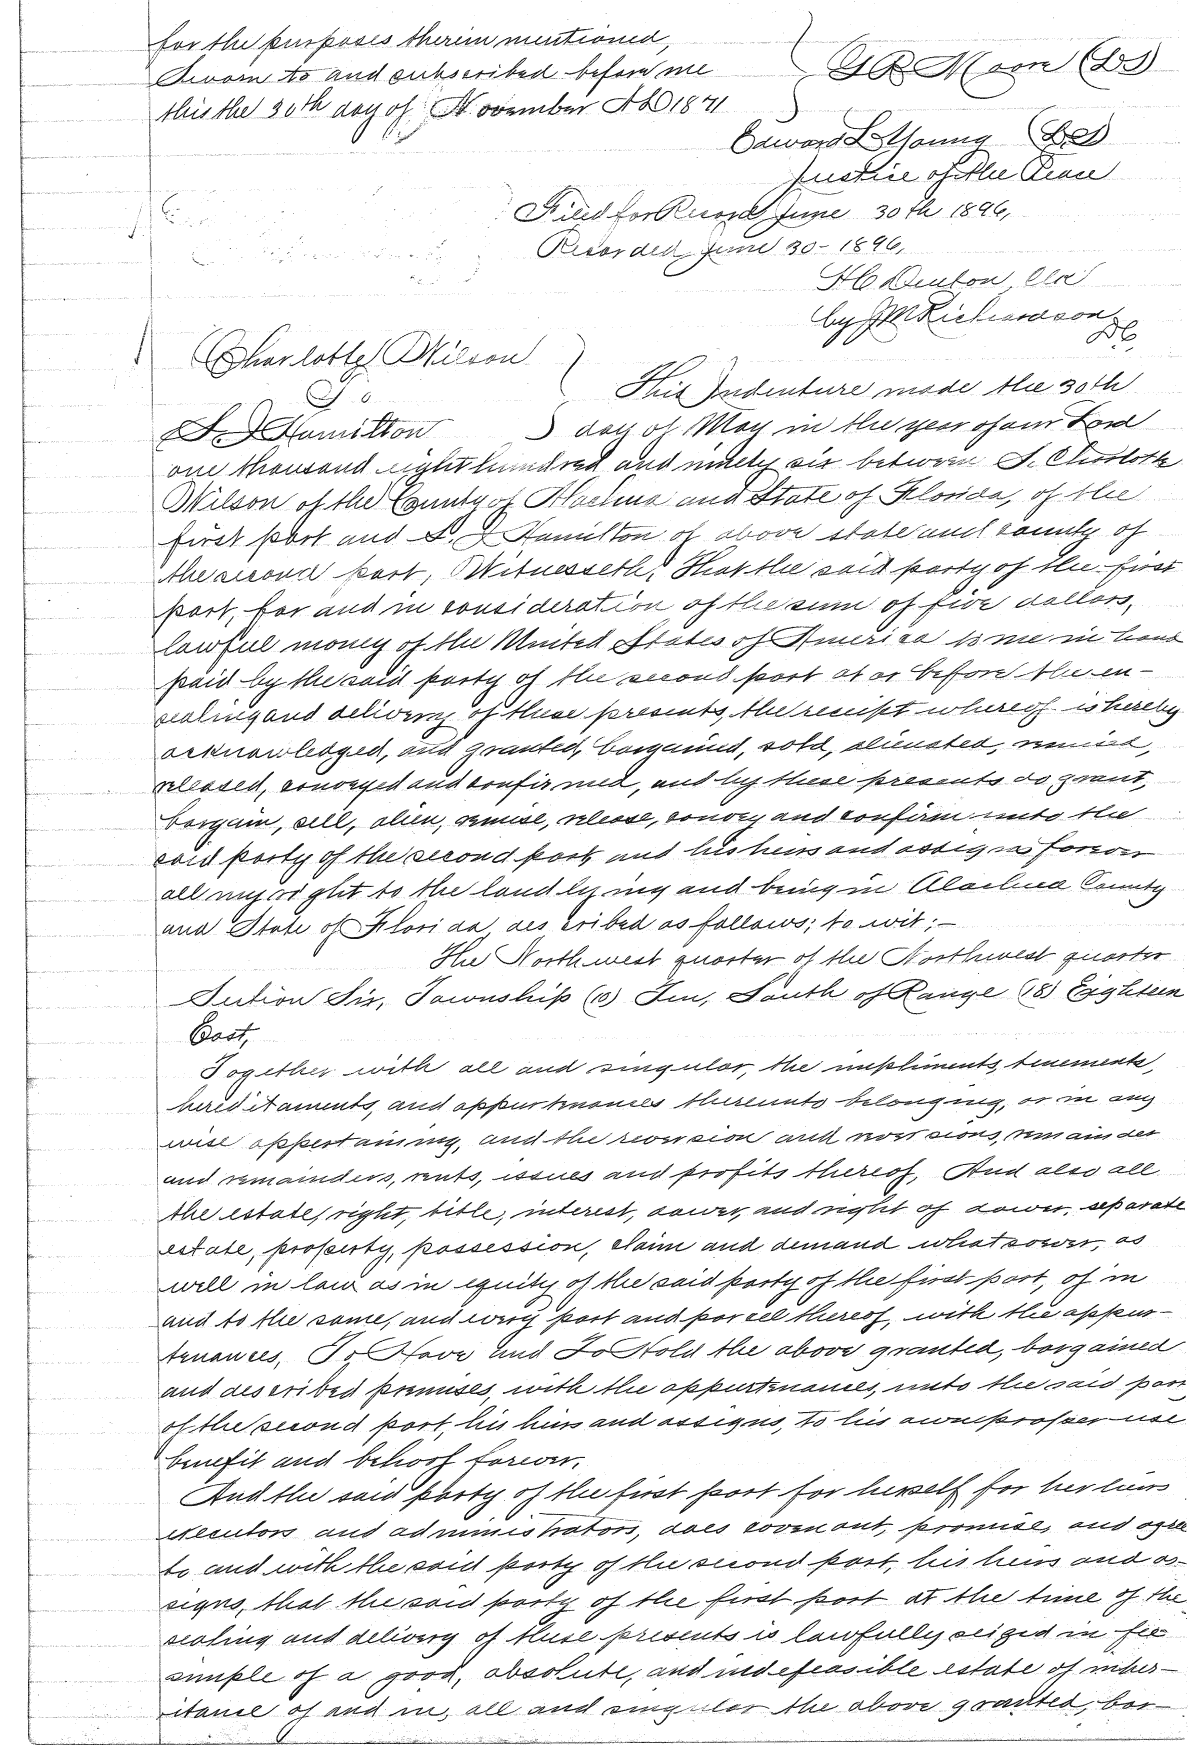 for the purposes therein mentioned,
Sworn to and subscribed before me
this the 30th day of November AD 1871
G R Moore (LS)
Edward L Young (LS)
Justice of the Peace
Filed for Record June 30th 1896,
Recorded June 30 - 1896,
H C Denton, Clk
by J M Richardson
DC,
Charlotte Wilson
To
L. J Hamilton
This Indenture made the 30th
day of May in the year of our Lord
one thousand eight hundred and ninety six between S. Charlotte
Wilson of the County of Alachua and State of Florida, of the
first part and L. J Hamilton of above state and county of
the second part, Witnesseth, That the said party of the first
part, for and in consideration of the sum of five dollars,
lawful money of the United States of America to me in hand
paid by the said party of the second part at or before the en-
sealing and delivery of these presents, the receipt whereof is hereby
acknowledged, and granted, bargained, sold, alienated, remised,
released, conveyed and confirmed, and by these presents do grant,
bargain, sell, alien, remise, release, convey and confirm unto the
said party of the second part, and his heirs and assigns forever
all my right to the land lying and being in Alachua County
and State of Florida described as follows; to wit; -
The Northwest quarter of the Northwest quarter
Section Six, Township (10) Ten, South of Range (18) Eighteen
East,
Together with all and singular, the impliments, tenements,
hereditaments, and appurtenances thereunto belonging, or in any
wise appertaining, and the reversion and reversions, remainder
and remainders, rents, issues and profits thereof, And also all
the estate, right, title, interest, dower, and right of dower, separate
estate, property, possession, claim and demand whatsoever, as
well in law as in equity of the said party of the first part, of in
and to the same, and every part and parcel thereof, with the appur-
tenances, To Have and To Hold the above granted, bargained
and described premises, with the appurtenances, unto the said part
of the second part, his heirs and assigns, to his own proper use
benefit and behoof forever,
And the said party of the first part for herself for her heirs
executors and administrators, does covenant, promise, and agree
to and with the said party of the second part, his heirs and as-
signs, that the said party of the first part at the time of the
sealing and delivery of these presents is lawfully seized in fee
simple of a good, absolute, and indefeasible estate of inher-
itance of and in, all and singular the above granted, bar-